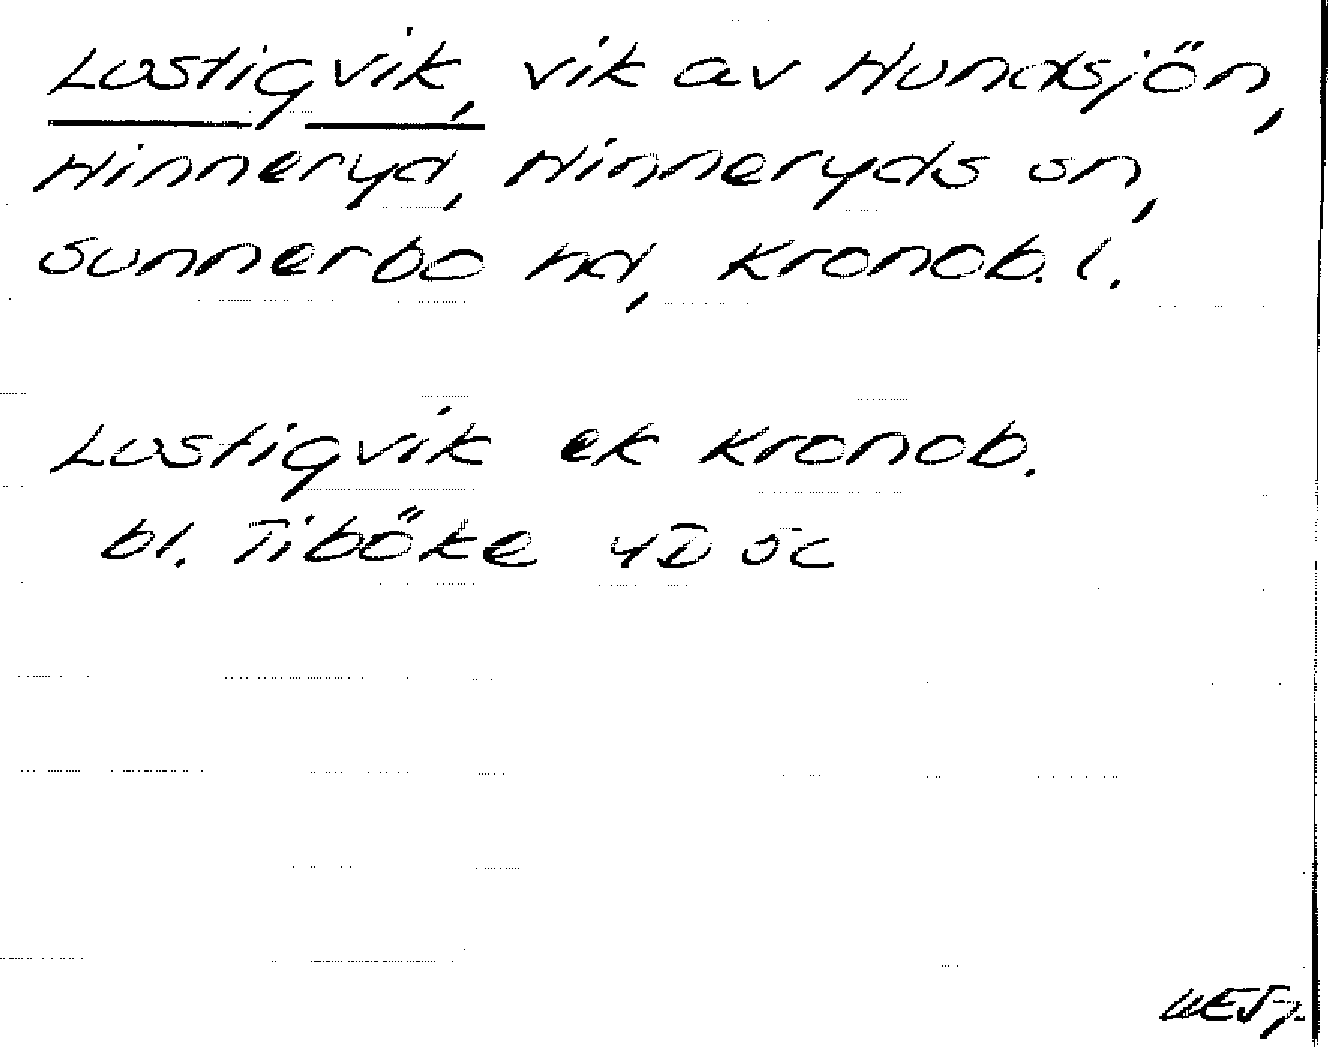 Lustigvik, vik av Hundsjön,
Hinneryd, Hinneryds sn,
Sunnerbo hd, Kronob. l.
Lustigvik ek Kronob.
bl. Tiböke 4D 5c